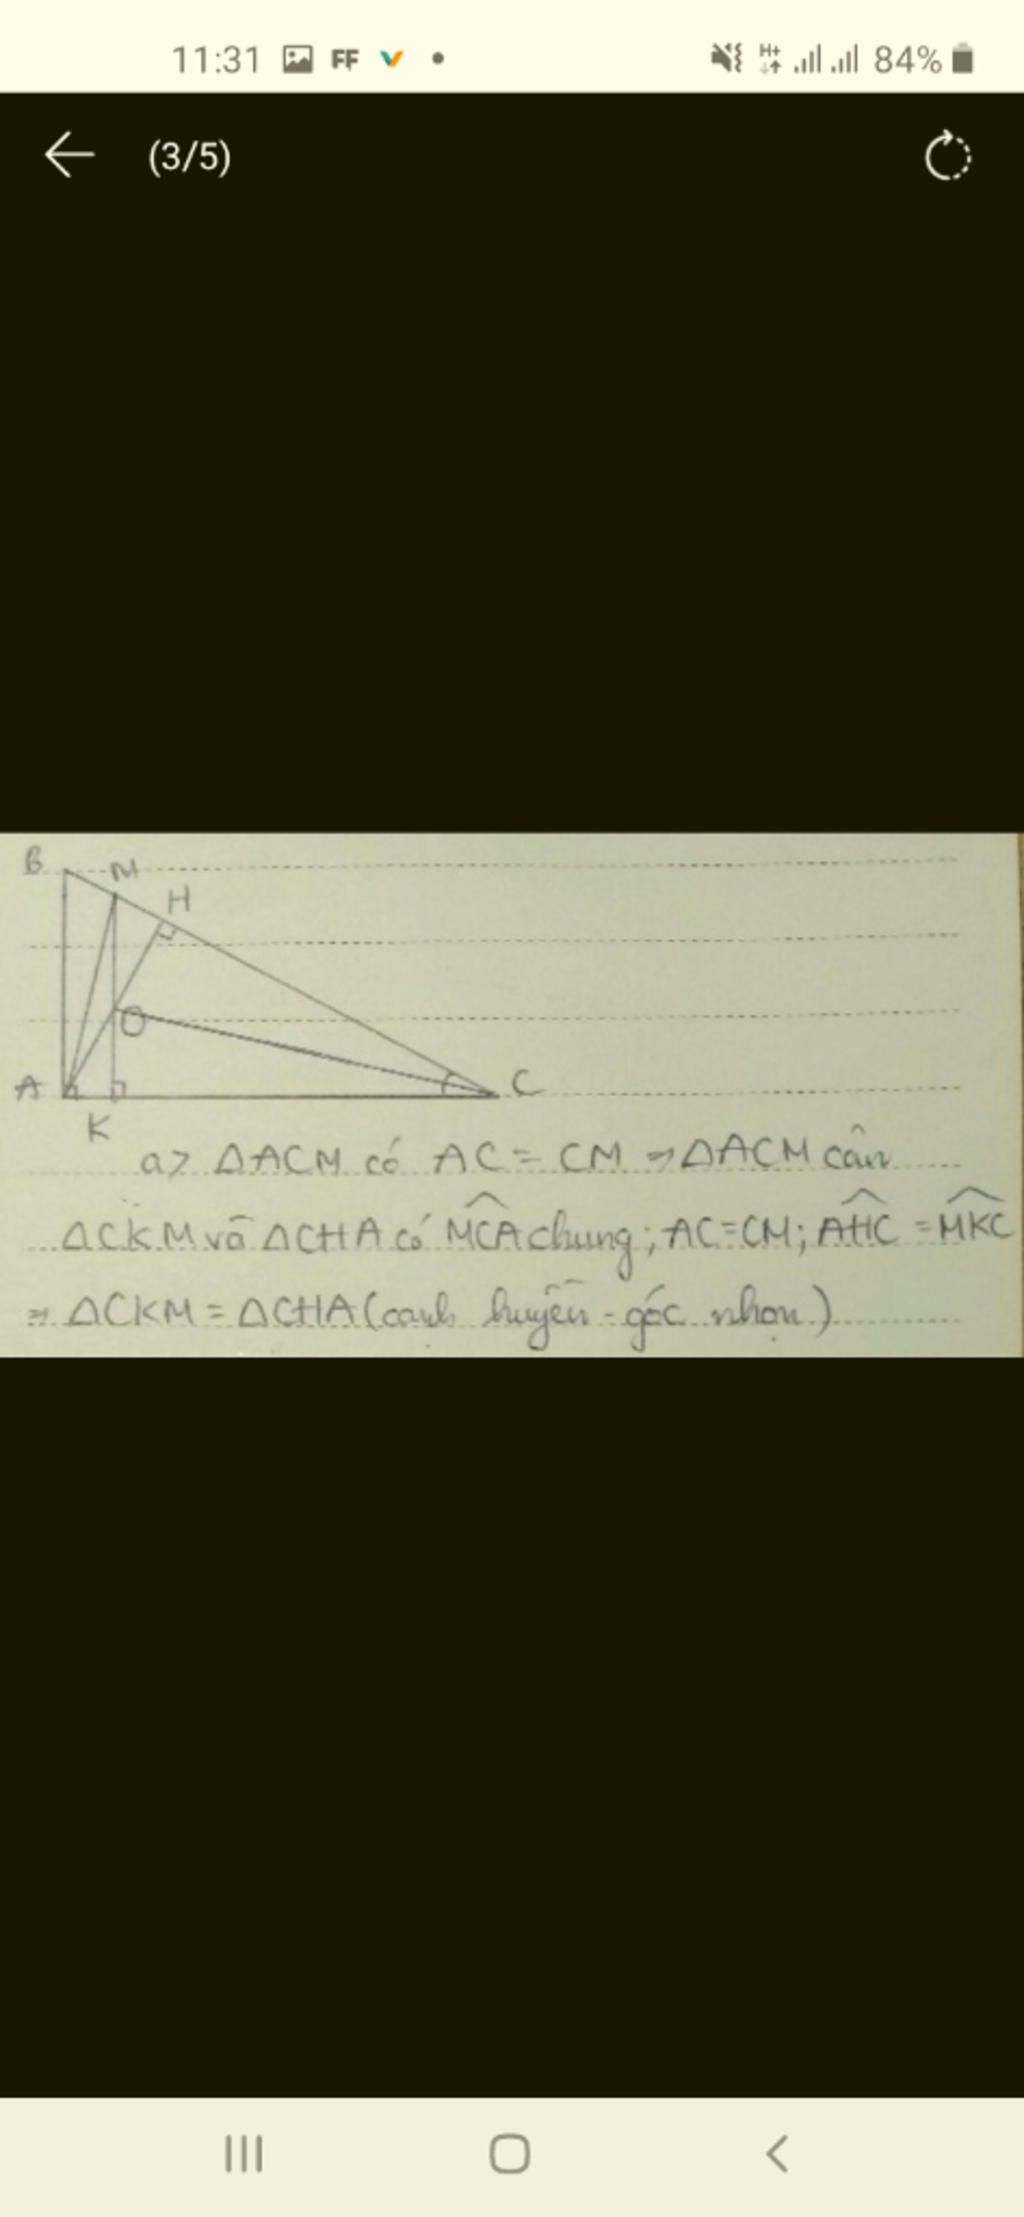 11:31 FF H+ 84%
(3/5)
B M
H
O
A C
K
a> ΔACM có AC = CM ⇒ ΔACM cân
ΔCKM và ΔCHA có M̂CA chung; AC=CM; ÂHC = M̂KC
⇒ ΔCKM = ΔCHA (cạnh huyền - góc nhọn)